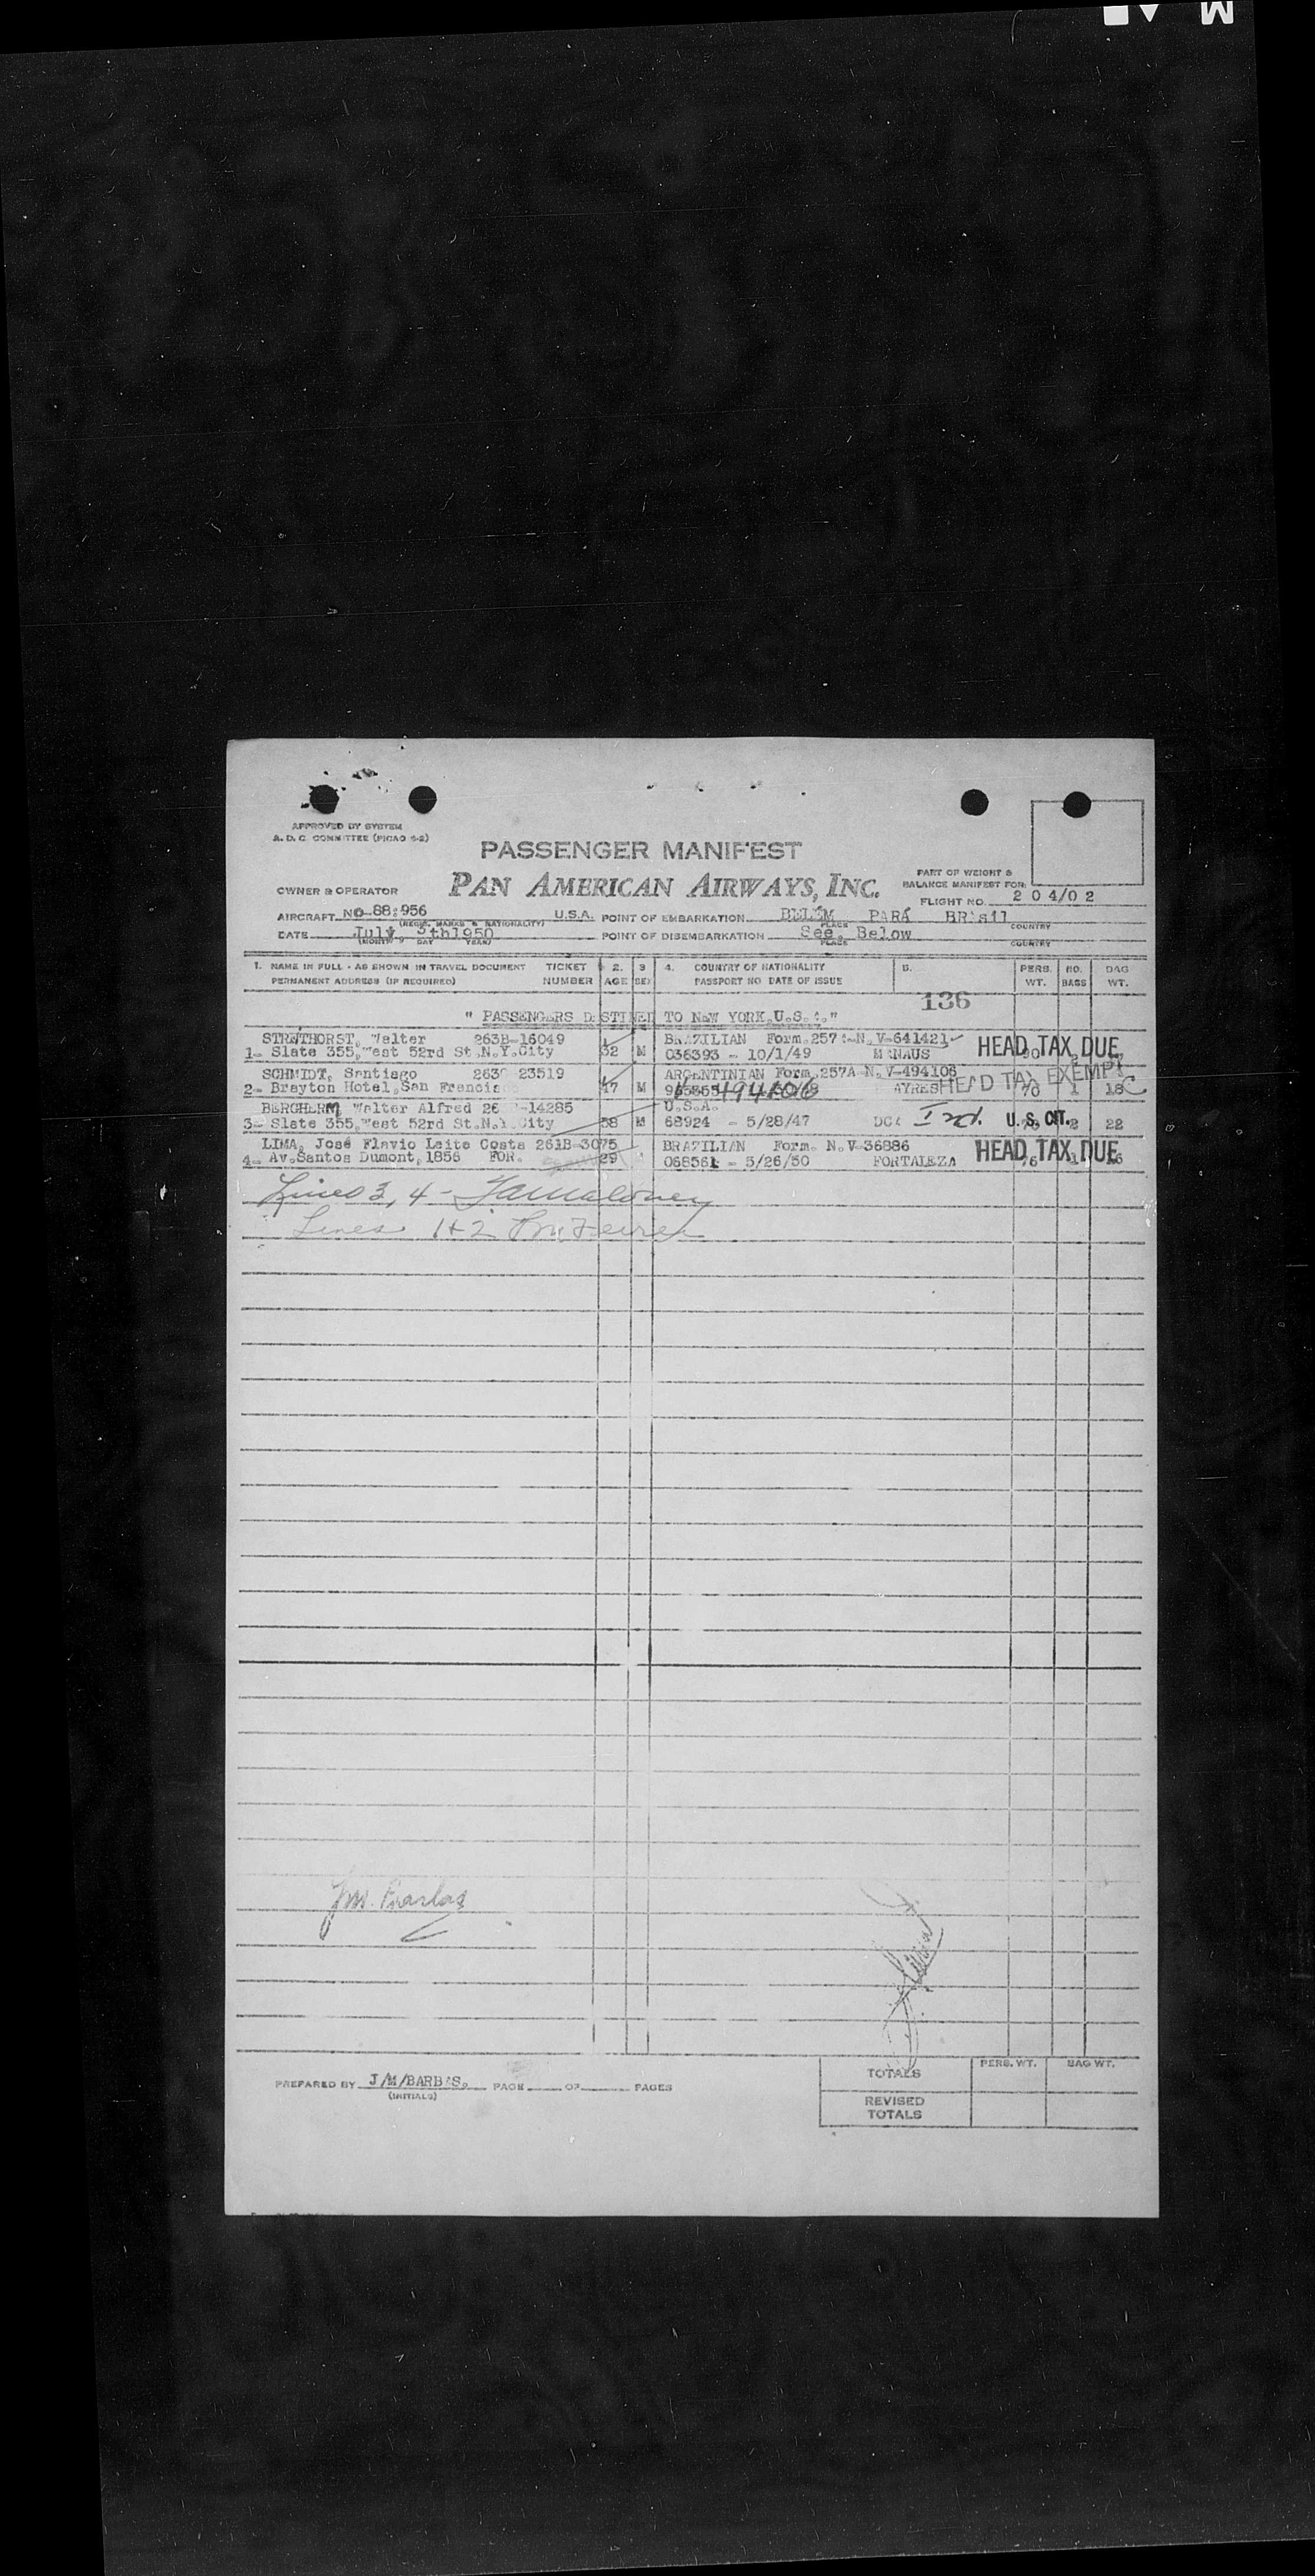 APPROVED BY SYSTEM
A. D. C. COMMITTEE (PICAO 4-2)
PASSENGER MANIFEST
PAN AMERICAN AIRWAYS, INC.
PART OF WEIGHT &
BALANCE MANIFEST FOR:
OWNER & OPERATOR
FLIGHT NO. 2 0 4/0 2
AIRCRAFT NO 88:956 U.S.A. POINT OF EMBARKATION BELÉM PARÁ BRasil
(REGIS. MARKS & NATIONALITY) PLACE COUNTRY
DATE July 5th1950 POINT OF DISEMBARKATION See. Below
(MONTH DAY YEAR) PLACE COUNTRY
1. NAME IN FULL - AS SHOWN IN TRAVEL DOCUMENT TICKET 2. 3 4. COUNTRY OF NATIONALITY 5. PERS. NO. BAG
PERMANENT ADDRESS (IF REQUIRED) NUMBER AGE SEX PASSPORT NO DATE OF ISSUE WT. BAGS WT.
136
" PASSENGERS DESTINED TO NEW YORK,U.S.A."
Walter 263B-16049 BRAZILIAN Form.257A-N.V-641421
1- Slate 355,West 52rd St.N.Y.City 32 M 036393 - 10/1/49 MANAUS HEAD TAX DUE
SCHMIDT, Santiago 263 23519 ARGENTINIAN Form.257A-N.V-494106
2- Brayton Hotel,San Francis 47 M 494106 AYRES HEAD TAX EXEMPT 70 1 18
BERGHERM Walter Alfred 26 -14285 U.S.A.
3- Slate 355,West 52rd St.N.Y.City 58 M 68924 - 5/28/47 U. S. CIT. 2 22
LIMA, José Flavio Leite Costa 261B-3075 BRAZILIAN Form. N.V-36886
4- Av.Santos Dumont,1856 FOR. 29 068561 - 5/26/50 FORTALEZA HEAD TAX DUE
Lines 3, 4 -
Lines 1+2
PREPARED BY J/M/BARBAS. PAGE OF PAGES
(INITIALS)
PERS. WT. BAG WT.
TOTALS
REVISED
TOTALS